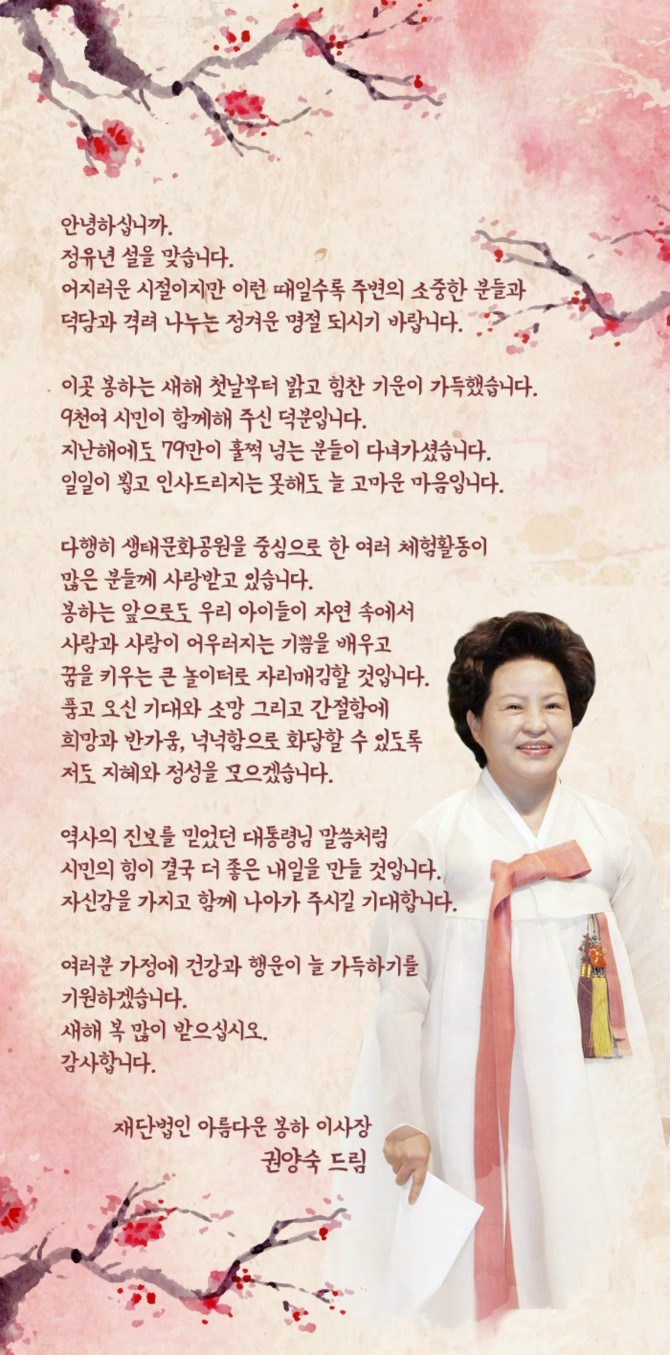 안녕하십니까.
정유년 설을 맞습니다.
어지러운 시절이지만 이런 때일수록 주변의 소중한 분들과
덕담과 격려 나누는 정겨운 명절 되시기 바랍니다.
이곳 봉하는 새해 첫날부터 밝고 힘찬 기운이 가득했습니다.
9천여 시민이 함께해 주신 덕분입니다.
지난해에도 79만이 훌쩍 넘는 분들이 다녀가셨습니다.
일일이 뵙고 인사드리지는 못해도 늘 고마운 마음입니다.
다행히 생태문화공원을 중심으로 한 여러 체험활동이
많은 분들께 사랑받고 있습니다.
봉하는 앞으로도 우리 아이들이 자연 속에서
사람과 사람이 어우러지는 기쁨을 배우고
꿈을 키우는 큰 놀이터로 자리매김할 것입니다.
품고 오신 기대와 소망 그리고 간절함에
희망과 반가움, 넉넉함으로 화답할 수 있도록
저도 지혜와 정성을 모으겠습니다.
역사의 진보를 믿었던 대통령님 말씀처럼
시민의 힘이 결국 더 좋은 내일을 만들 것입니다.
자신감을 가지고 함께 나아가 주시길 기대합니다.
여러분 가정에 건강과 행운이 늘 가득하기를
기원하겠습니다.
새해 복 많이 받으십시오.
감사합니다.
재단법인 아름다운 봉하 이사장
권양숙 드림